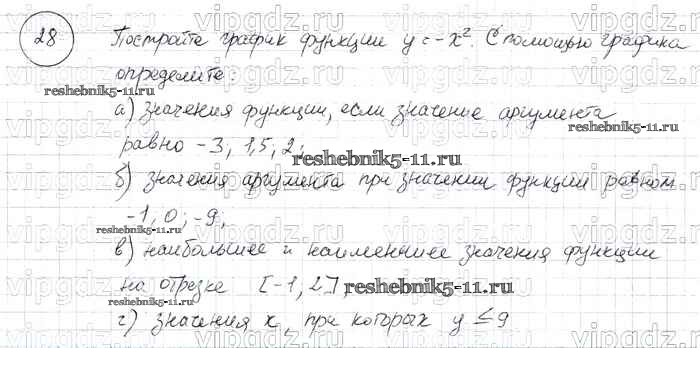 28 Постройте график функции y = -x². С помощью графика
определите:
reshebnik5-11.ru
а) значения функции, если значение аргумента
reshebnik5-11.ru
равно -3; 1,5; 2;
reshebnik5-11.ru
б) значения аргумента при значении функции равном
-1; 0; -9;
reshebnik5-11.ru
в) наибольшее и наименьшее значения функции
на отрезке [-1, 2];
reshebnik5-11.ru
reshebnik5-11.ru
г) значения x, при которых y ≤ 9
vipgdz.ru